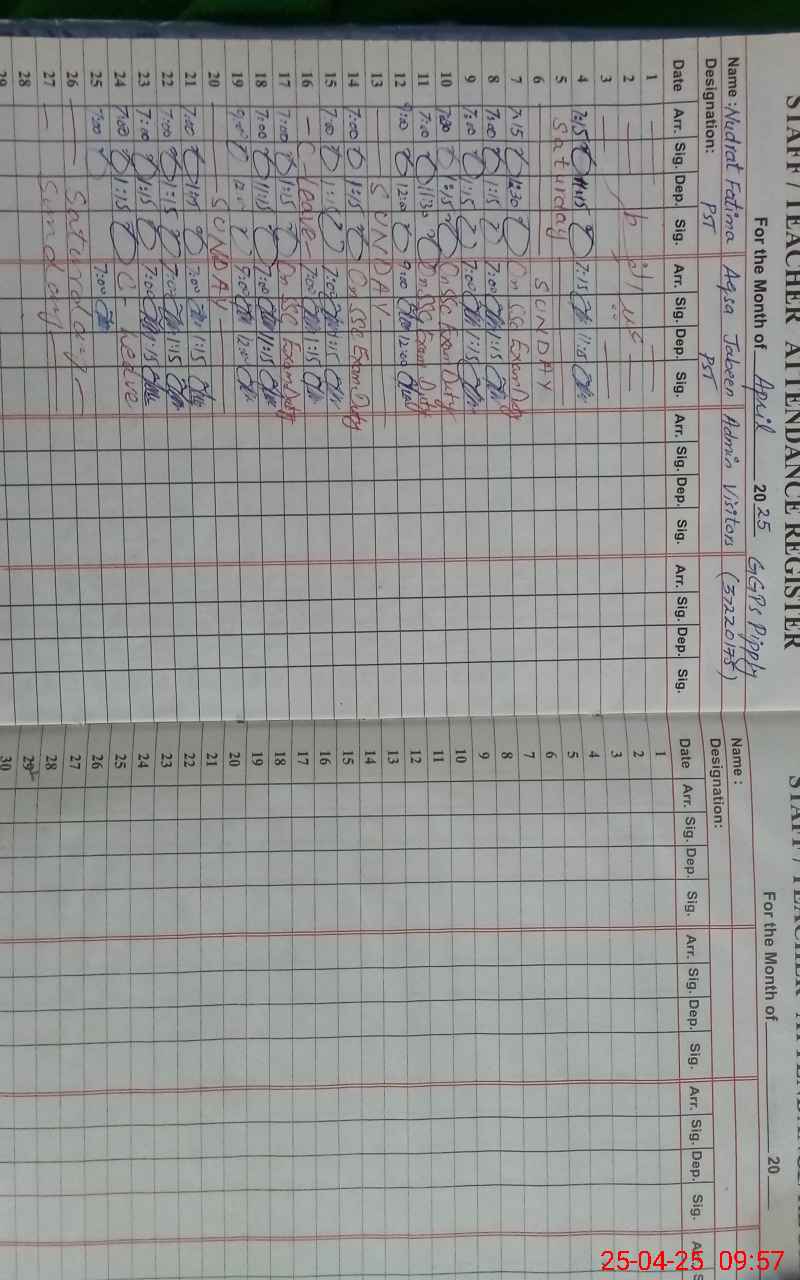 STAFF / TEACHER ATTENDANCE REGISTER
For the Month of April 2025 GGPS Pipply
Name : Nudrat Fatima Aqsa Jabeen Admin Visitors (37220175)
Designation: PST PST
Date Arr. Sig. Dep. Sig. Arr. Sig. Dep. Sig. Arr. Sig. Dep. Sig. Arr. Sig. Dep. Sig.
1
2
3
4 7:15 11:15 7:15 11:15
5 Saturday
6 SUNDAY
7 7:15 12:30 On SSC Exam Duty
8 7:00 1:15 7:00 1:15
9 7:00 1:15 7:00 1:15
10 7:00 1:15 On SSC Exam Duty
11 7:00 11:30 On SSC Exam Duty
12 9:00 12:00 9:00 12:00
13 SUNDAY
14 7:00 1:15 On SSC Exam Duty
15 7:00 1:15 7:00 1:15
16 C - leave 7:00 1:15
17 7:00 1:15 On SSC Exam Duty
18 7:00 11:15 7:00 11:15
19 9:00 12:00 9:00 12:00
20 SUNDAY
21 7:00 1:15 7:00 1:15
22 7:00 1:15 7:00 1:15
23 7:00 1:15 7:00 1:15
24 7:00 1:15 C - Leave
25 7:00 7:00
26 Saturday
27 Sunday
28
29
For the Month of 20
Name :
Designation:
Date Arr. Sig. Dep. Sig. Arr. Sig. Dep. Sig. Arr. Sig. Dep. Sig.
1
2
3
4
5
6
7
8
9
10
11
12
13
14
15
16
17
18
19
20
21
22
23
24
25
26
27
28
29
30
25-04-25 09:57